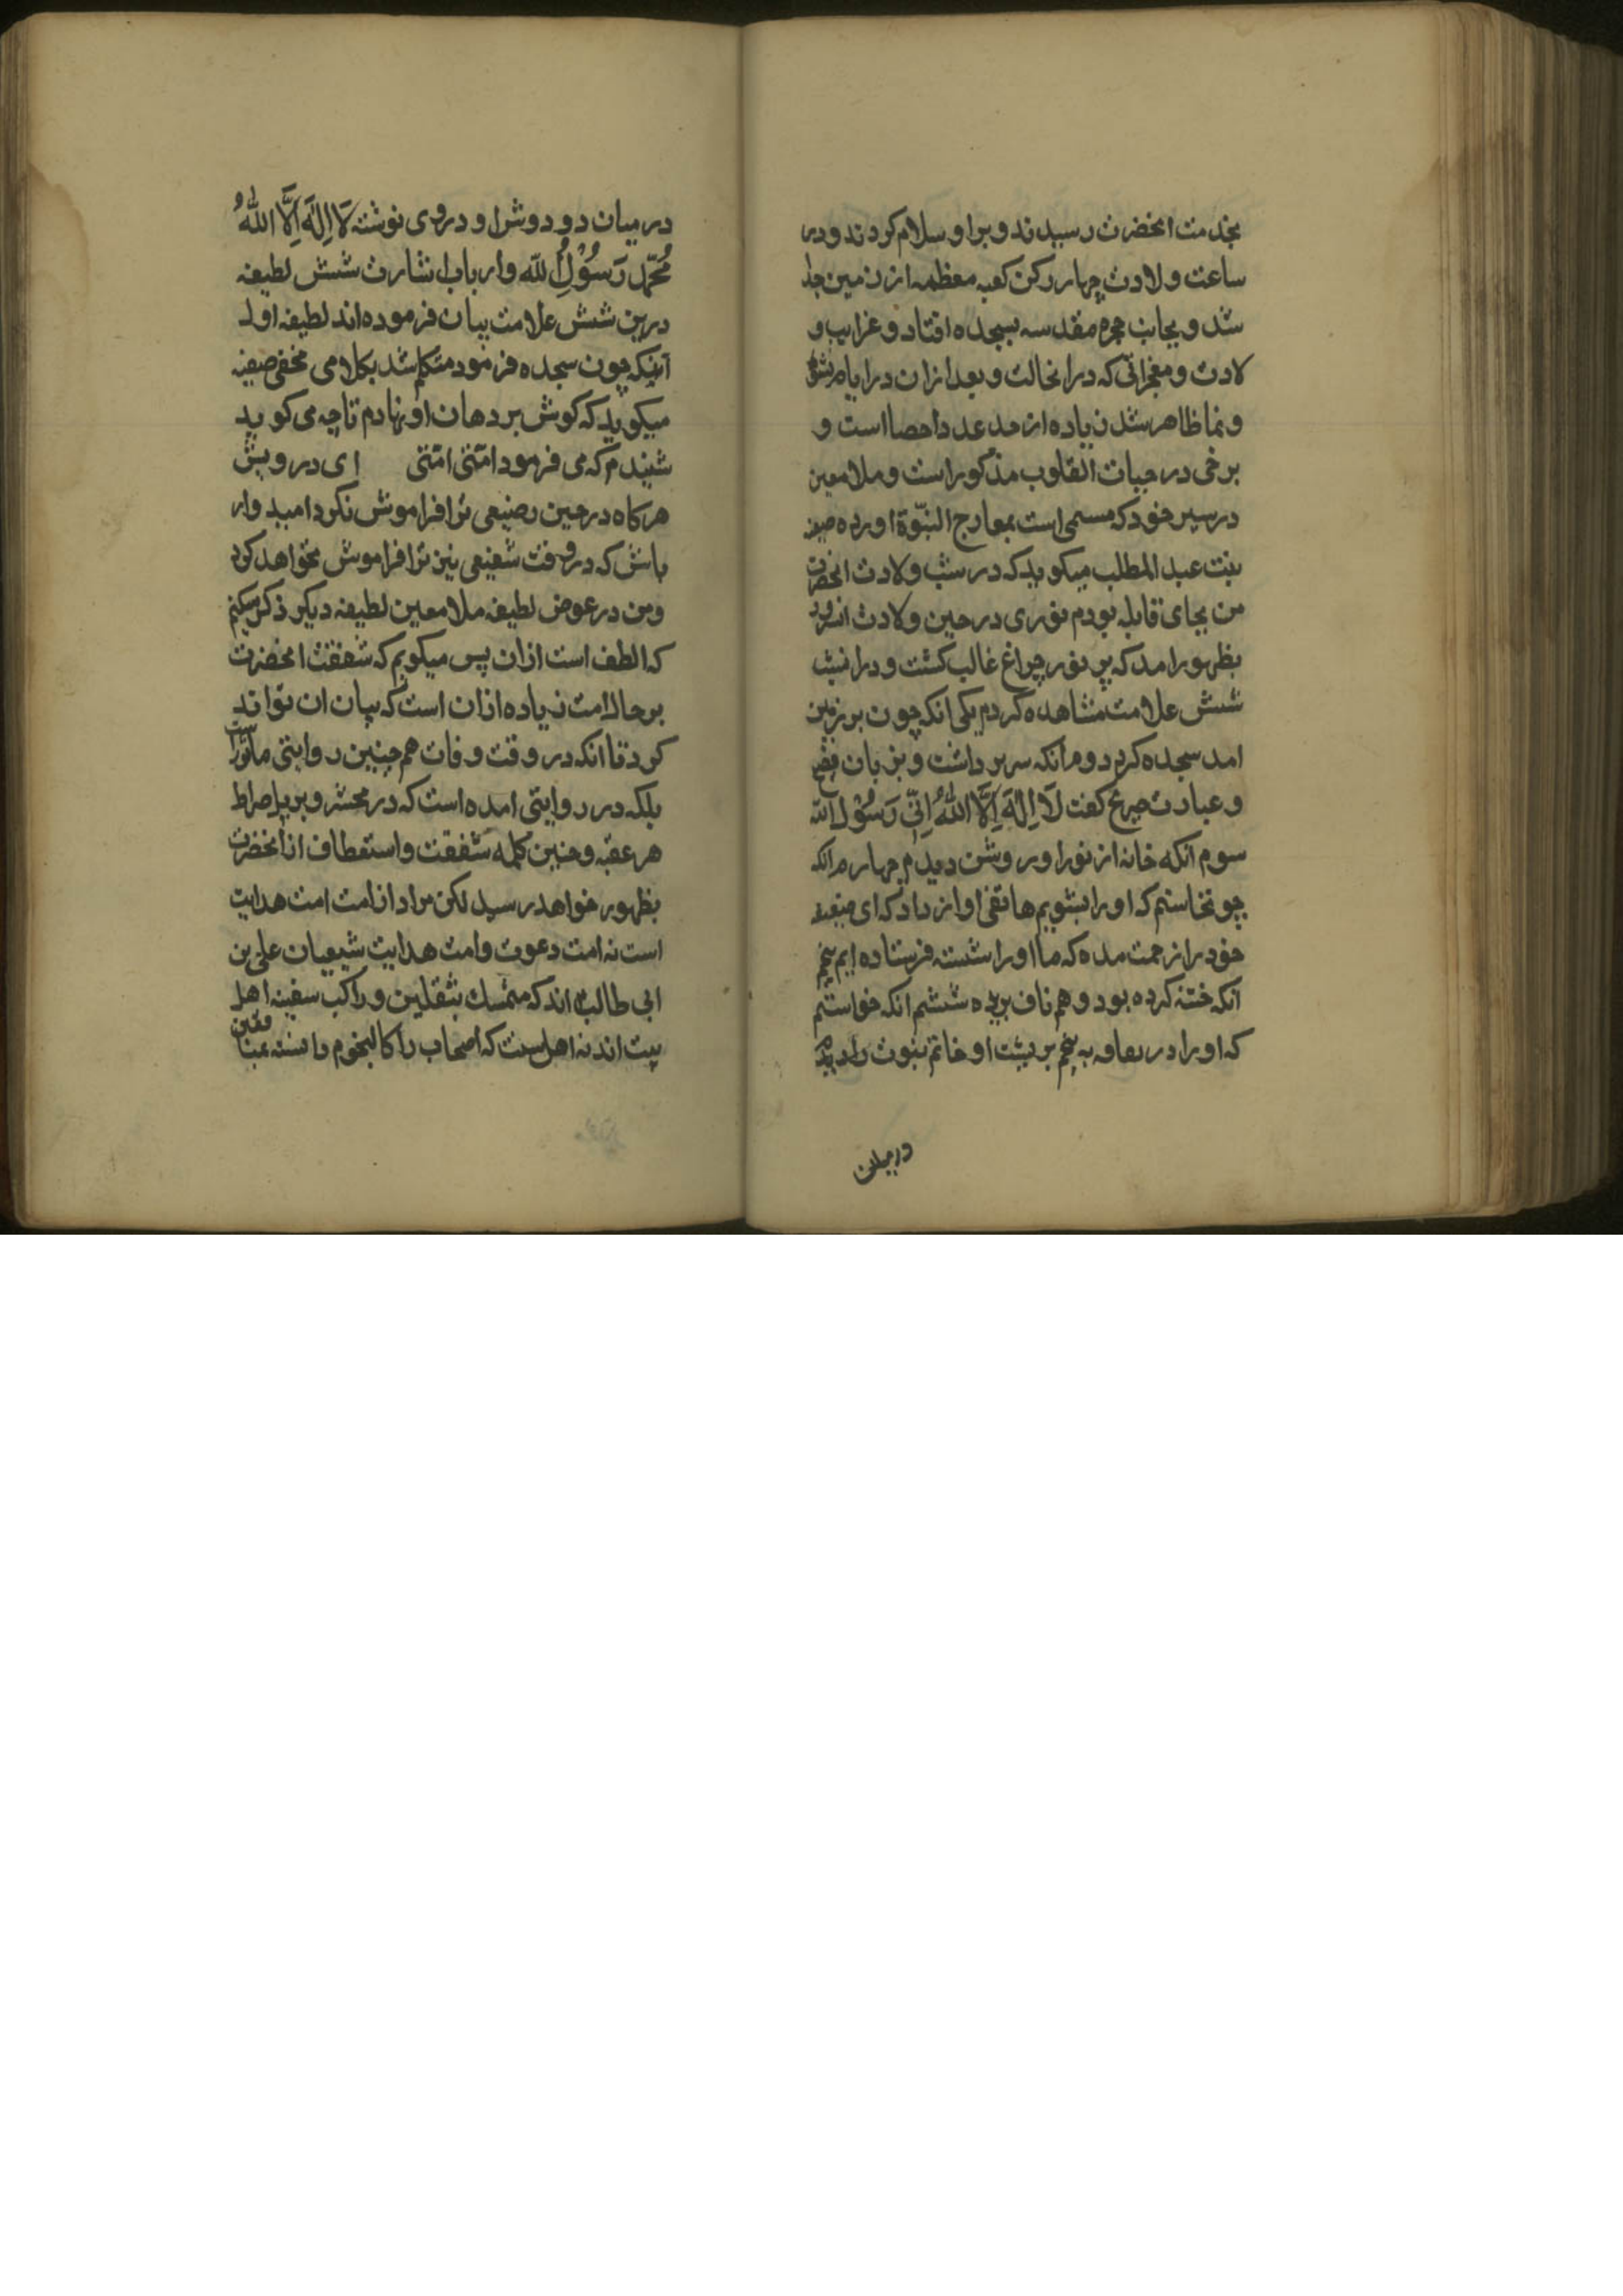 بخدمت انحضرت رسیدند و براو سلام کردند و در
ساعت ولادت چهار رکن کعبه معظمه از زمین جدا
شد و بجانب حجره مقدسه بسجده افتاد و غرایب و
لادت و معجزاتی که درانحالت و بعد ازان در ایام نشو
و نما ظاهر شد زیاده از حد عد و احصا است و
برخی در حیات القلوب مذکور است و ملا معین
در سیر خود که مسمی است بمعارج النبّوة اورده صفیه
بنت عبد المطلب میکوید که در شب ولادت انحضرت
من بجای قابله بودم نوری در حین ولادت انسرور
بظهور امد که بر نور چراغ غالب کشت و در انشب
شش علامت مشاهده کردم یکی انکه چون بر زمین
امد سجده کرد دوم انکه سر برداشت و بزبان فصیح
و عبارت صریح کفت لَا اِلٰهَ اِلَّا اللّٰهُ اِنّی رَسُوْل الله
سوم انکه خانه از نور او روشن دیدم چهارم انکه
چو نخاستم که او را بشویم هاتفی اواز داد که ای صفیه
خود را زحمت مده که ما او را شسته فرستاده ایم پنجم
انکه ختنه کرده بود و هم ناف بریده ششم انکه خواستم
که او را در بعاوه به پیچم بر پشت او خاتم نبوت را دیدم
درمیان
در میان دو دوش او در وی نوشته لَا اِلٰهَ اِلَّا اللّٰهُ
مُحَمَّد رَسُوْلُ اللّه و ارباب اشارت شش لطیفه
درین شش علامت بیان فرموده اند لطیفه اول
آنکه چون سجده فرمود متکلم شد بکلامی مخفی صفیه
میکوید که کوش بر دهان او نهادم تا چه می کوید
شنیدم که می فرمود امتی امتی ای درویش
هرکاه در حین رضیعی ترا فراموش نکرد امیدوار
باش که در وقت شفیعی نیز ترا فراموش نخواهد کرد
و من در عوض لطیفه ملا معین لطیفه دیکر ذکر میکنم
که الطف است ازان پس میکویم که شفقت انحضرت
بر حال امت زیاده ازان است که بیان ان تواند
کرد تا انکه در وقت وفات هم چنین روایتی ماثور است
بلکه در روایتی امده است که در محشر و بر پل صراط
هر عقبه و چنین کلمه شفقت و استعطاف از انحضرت
بظهور خواهد رسید لکن مراد از امت امت هدایت
است نه امت دعوت و امت هدایت شیعیان علی بن
ابی طالب اند که متمسک بثقلین و راکب سفینه اهل
بیت اند نه اهل سنت که اصحاب را کالنجوم دانسته